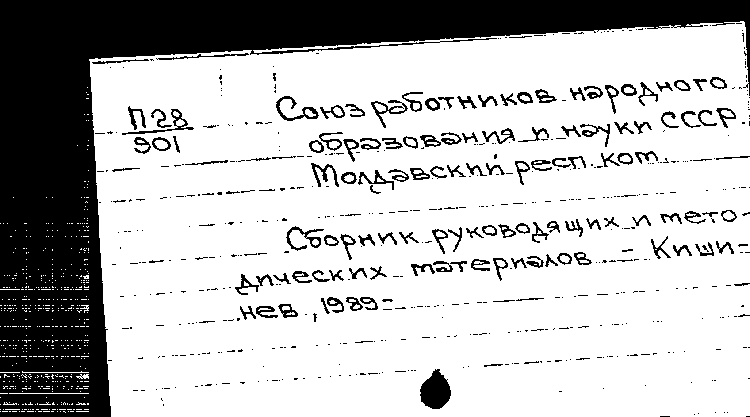 П28
901
Союз работников народного
образования и науки СССР.
Молдавский респ. ком.
Сборник руководящих и мето-
дических материалов. - Киши-
нев, 1989-